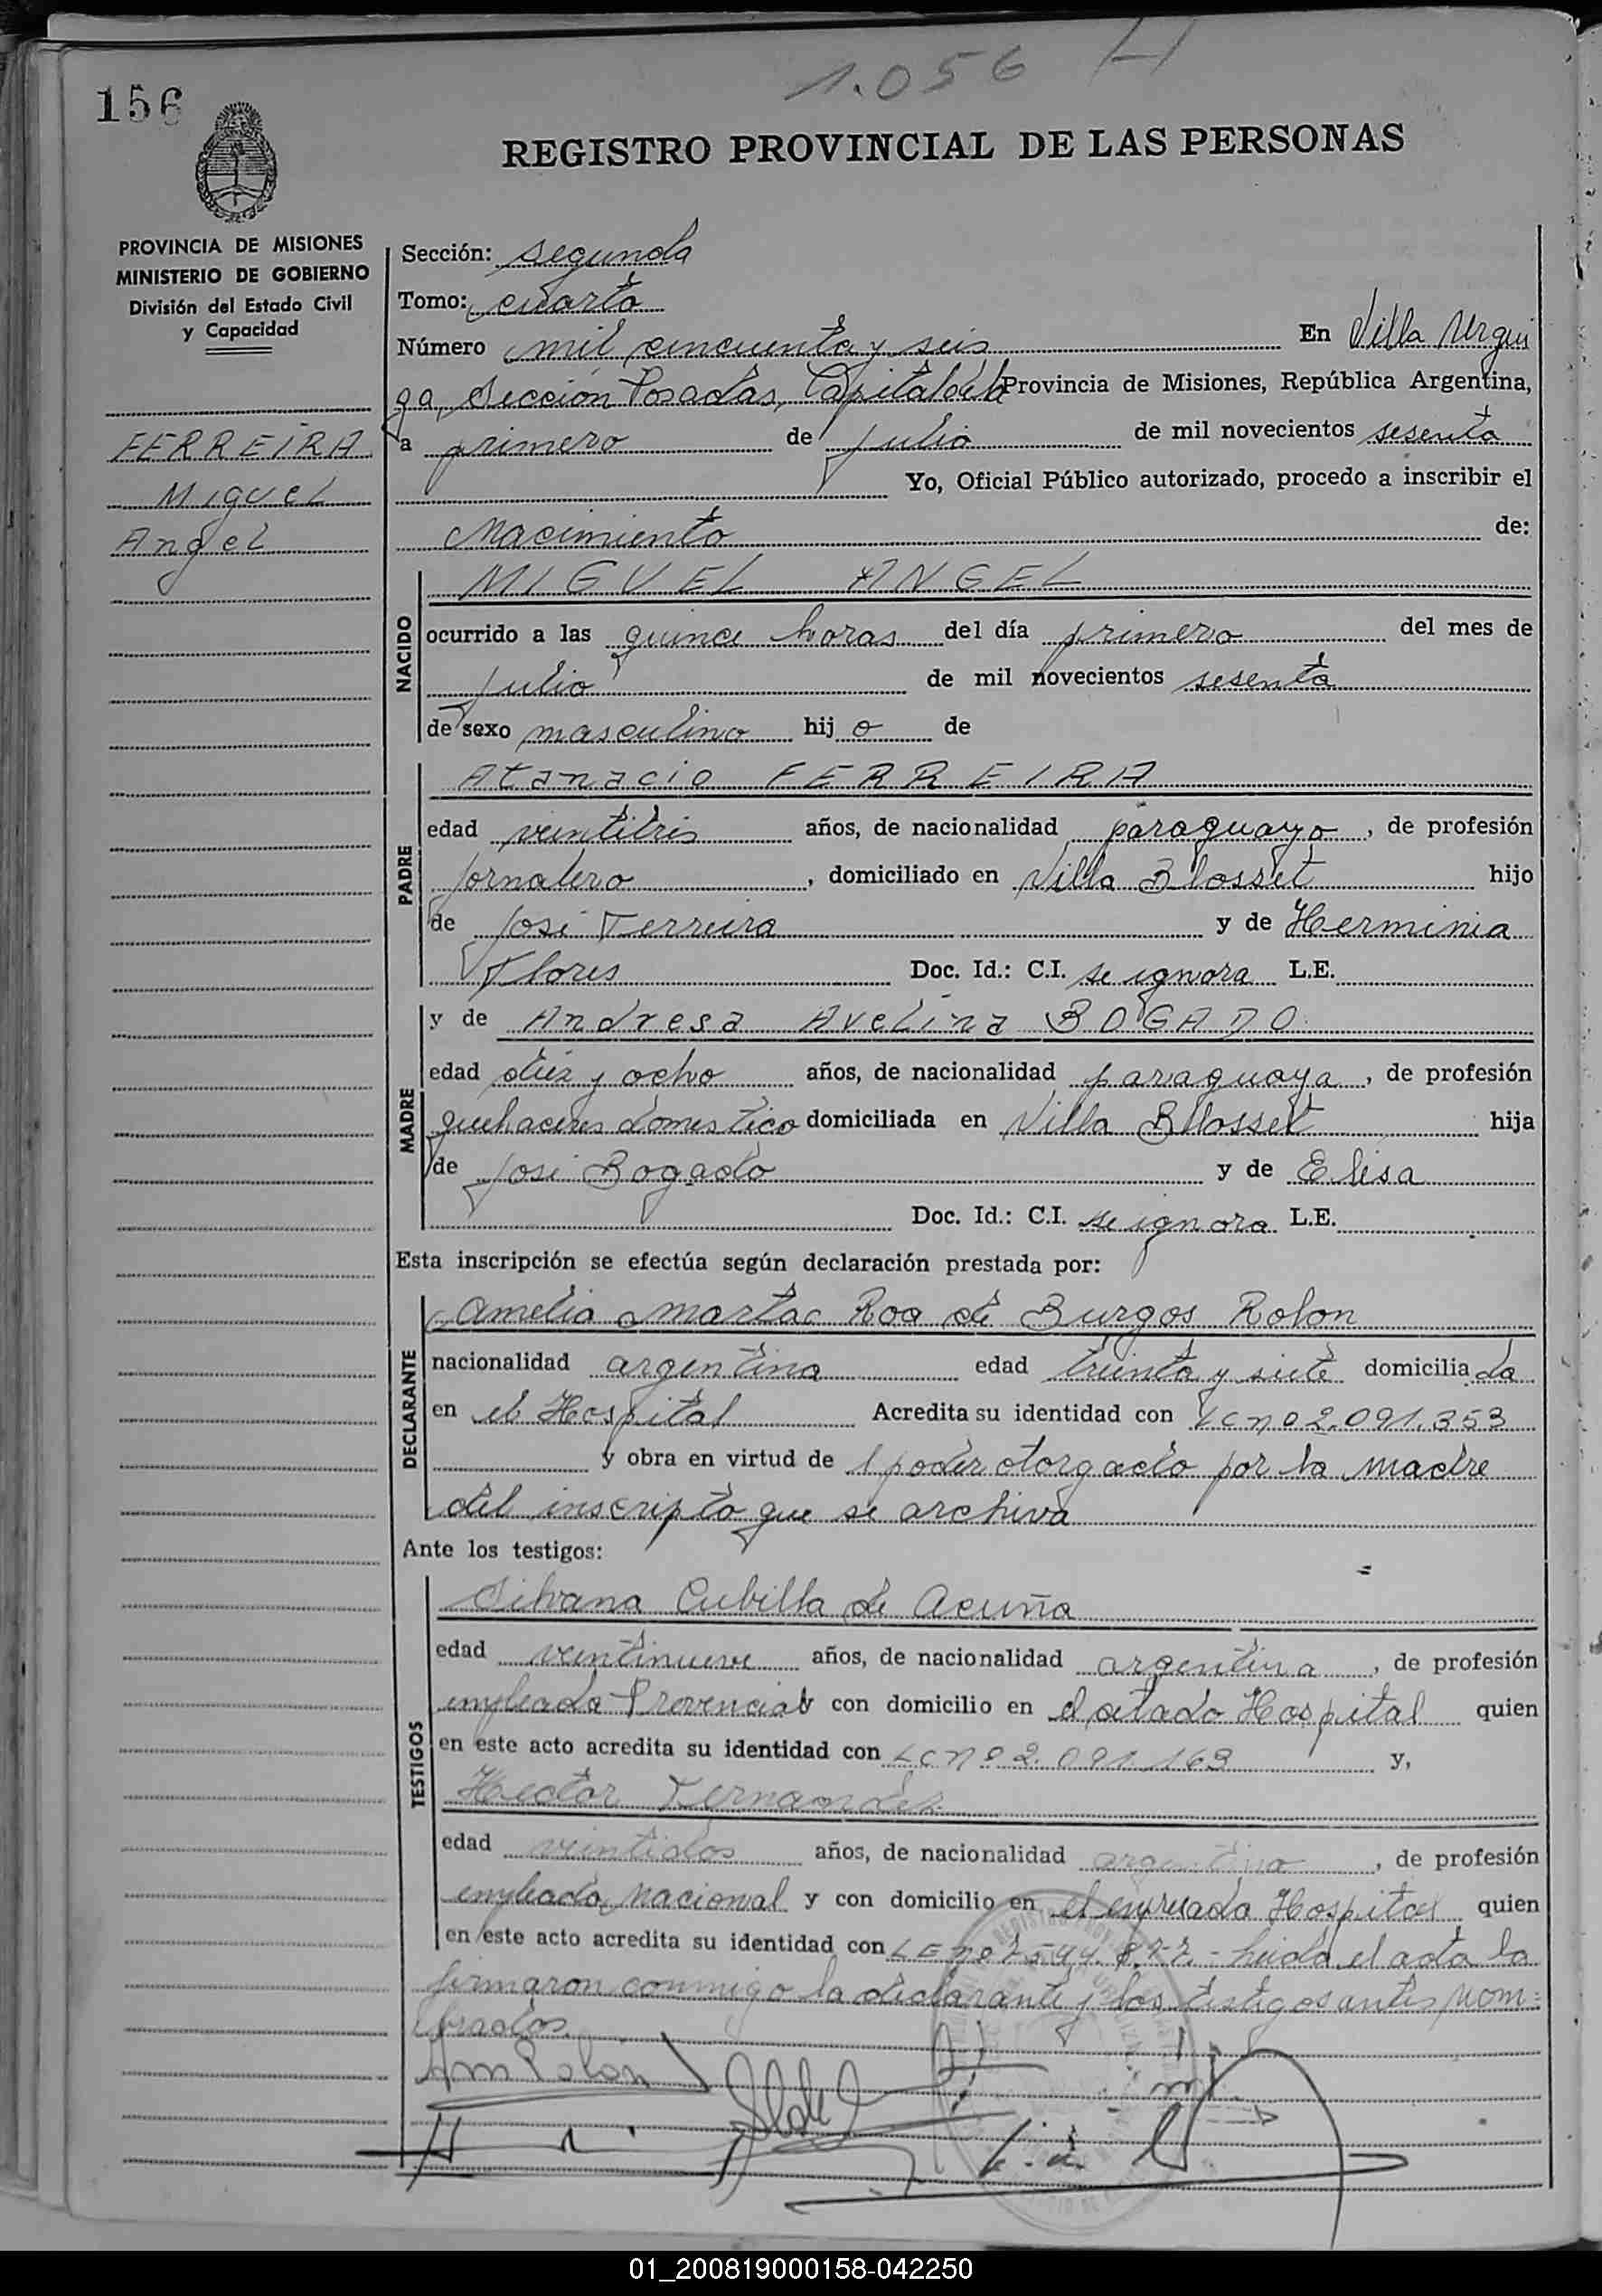 1.056
156
REGISTRO PROVINCIAL DE LAS PERSONAS
PROVINCIA DE MISIONES
MINISTERIO DE GOBIERNO
División del Estado Civil
y Capacidad
FERREIRA
Miguel
Angel
Sección: segunda
Tomo: cuarto
Número mil cincuenta y seis En Villa Urqui
za, Sección Posadas, Capital de la Provincia de Misiones, República Argentina,
a primero de julio de mil novecientos sesenta
Yo, Oficial Público autorizado, procedo a inscribir el
Nacimiento de:
NACIDO
MIGUEL ANGEL
ocurrido a las quince horas del día primero del mes de
julio de mil novecientos sesenta
de sexo masculino hij o de
PADRE
Atanacio FERREIRA
edad veintitrés años, de nacionalidad paraguayo, de profesión
jornalero, domiciliado en Villa Blosset hijo
de José Ferreira y de Herminia
Flores Doc. Id.: C.I. se ignora L.E.
MADRE
y de Andresa Avelina BOGADO
edad diez y ocho años, de nacionalidad paraguaya, de profesión
quehaceres domestico domiciliada en Villa Bllosset hija
de José Bogado y de Elisa
Doc. Id.: C.I. se ignora L.E.
Esta inscripción se efectúa según declaración prestada por:
DECLARANTE
Amelia Marta Roa de Burgos Rolon
nacionalidad argentina edad treinta y siete domicilia da
en el Hospital Acredita su identidad con LC nº 2.091.353
y obra en virtud de poder otorgado por la madre
del inscripto que se archiva
Ante los testigos:
TESTIGOS
Silvana Cubilla de Acuña
edad veintinueve años, de nacionalidad argentina, de profesión
empleada Provincial con domicilio en el citado Hospital quien
en este acto acredita su identidad con LC nº 2.091.163 y,
Hector Fernandez
edad veintidos años, de nacionalidad argentina, de profesión
empleado nacional y con domicilio en el expresado Hospital quien
en este acto acredita su identidad con LE nº leida el acta la
firmaron conmigo la declarante y los testigos antes nom=
brados.
01_200819000158-042250